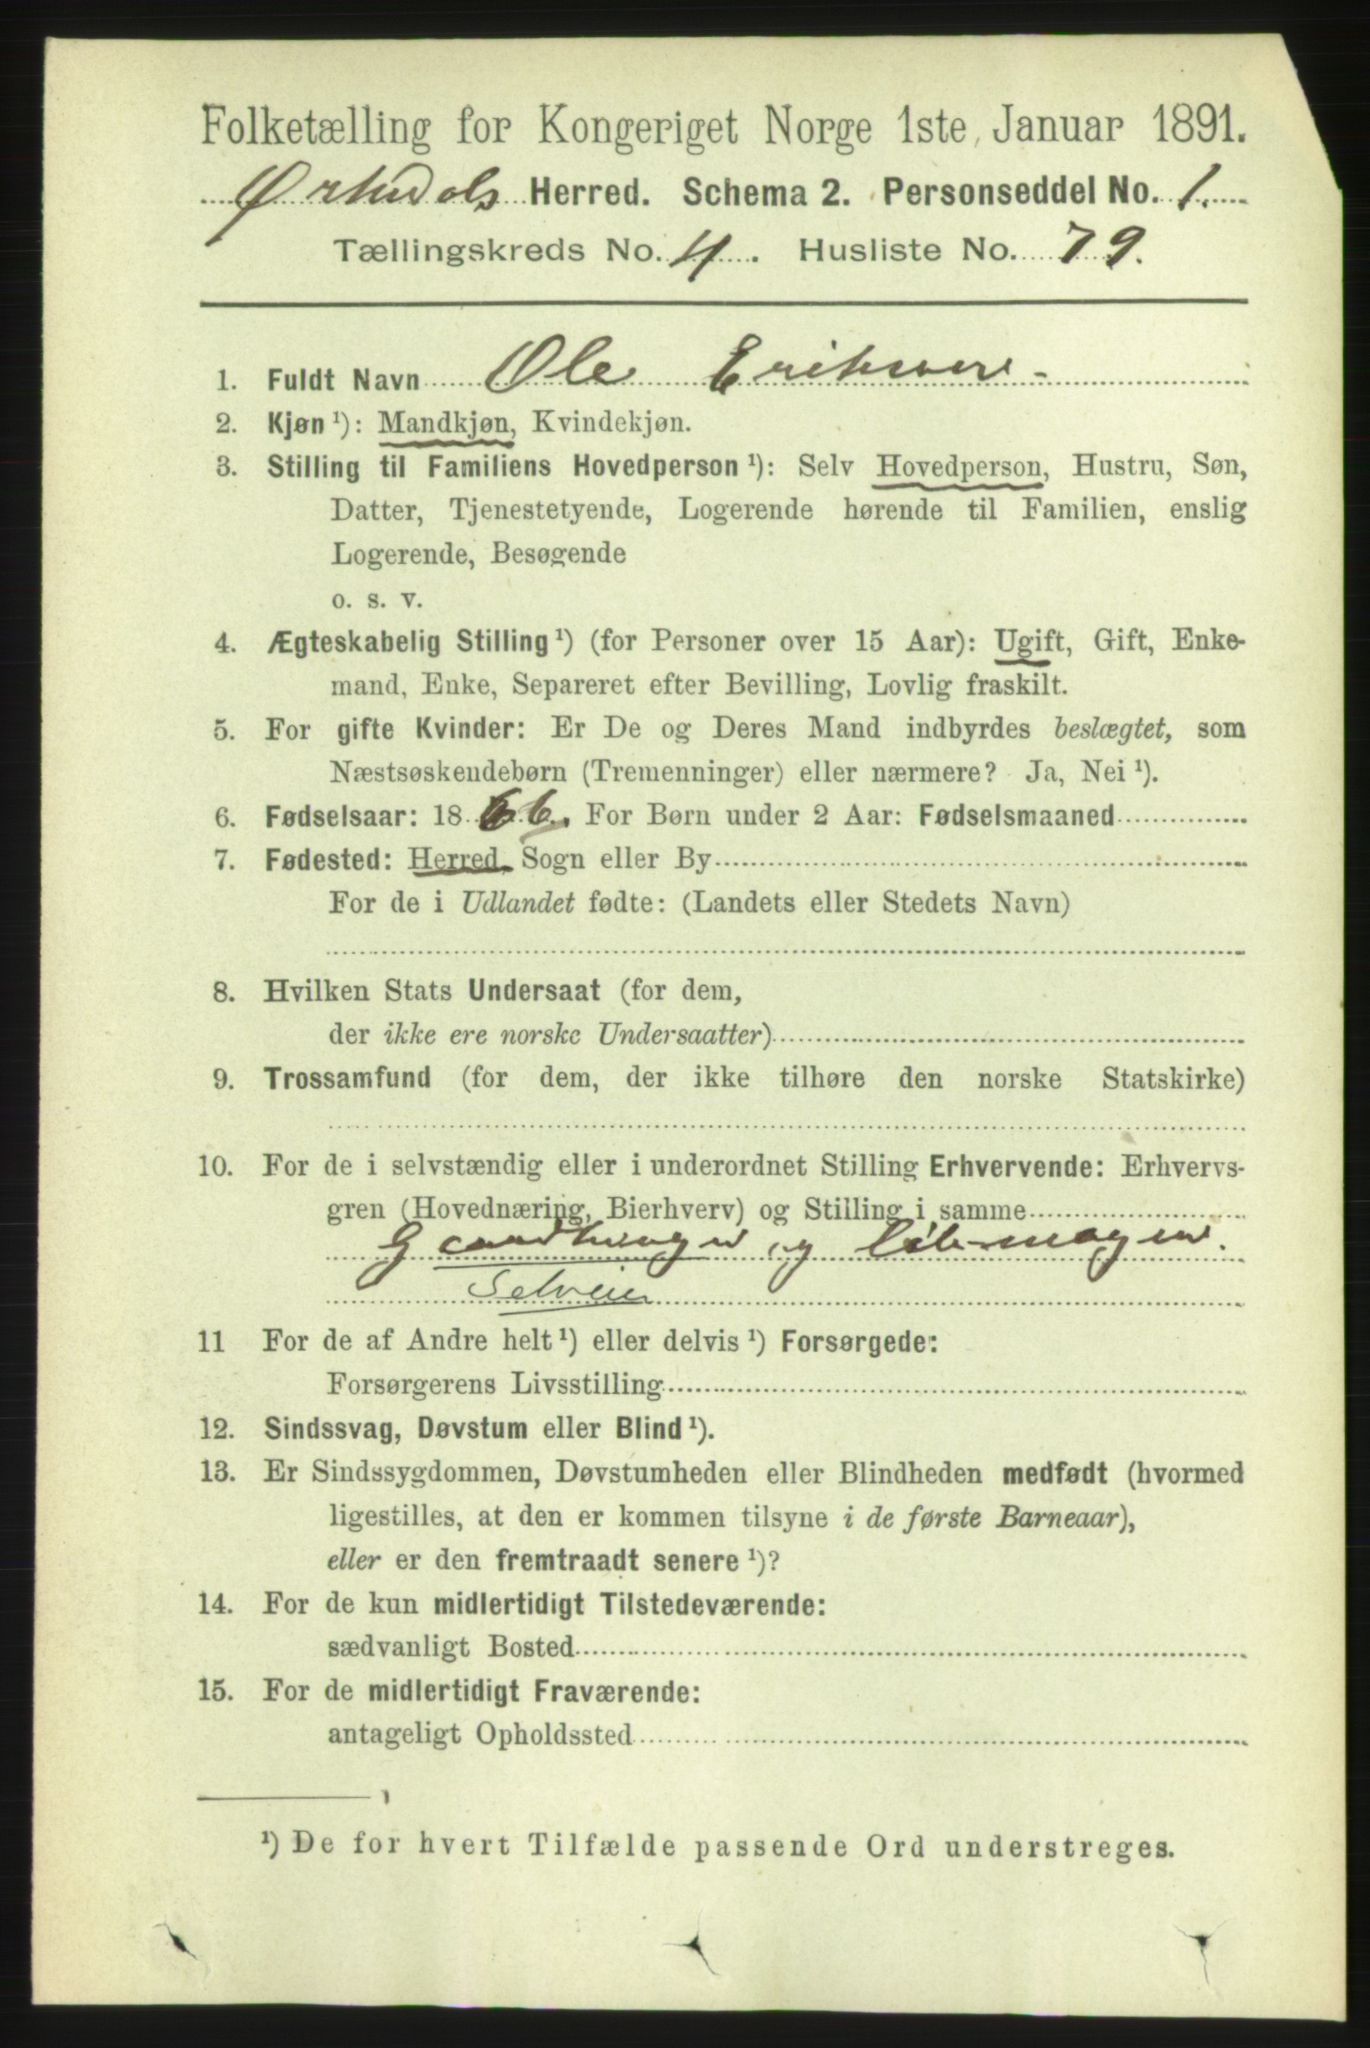 Folketælling for Kongeriget Norge 1ste Januar 1891.
Ørkedals Herred. Schema 2. Personseddel No. 1.
Tællingskreds No. 4. Husliste No. 79.
1. Fuldt Navn Ole Eriksen
2. Kjøn ¹): Mandkjøn, Kvindekjøn.
3. Stilling til Familiens Hovedperson ¹): Selv Hovedperson, Hustru, Søn,
Datter, Tjenestetyende, Logerende hørende til Familien, enslig
Logerende, Besøgende
o. s. v.
4. Ægteskabelig Stilling ¹) (for Personer over 15 Aar): Ugift, Gift, Enke-
mand, Enke, Separeret efter Bevilling, Lovlig fraskilt.
5. For gifte Kvinder: Er De og Deres Mand indbyrdes beslægtet, som
Næstsøskendebørn (Tremenninger) eller nærmere? Ja, Nei ¹).
6. Fødselsaar: 1866. For Børn under 2 Aar: Fødselsmaaned
7. Fødested: Herred, Sogn eller By
For de i Udlandet fødte: (Landets eller Stedets Navn)
8. Hvilken Stats Undersaat (for dem,
der ikke ere norske Undersaatter)
9. Trossamfund (for dem, der ikke tilhøre den norske Statskirke)
10. For de i selvstændig eller i underordnet Stilling Erhvervende: Erhvervs-
gren (Hovednæring, Bierhverv) og Stilling i samme
Gaardbruger og
Selveier
11 For de af Andre helt ¹) eller delvis ¹) Forsørgede:
Forsørgerens Livsstilling
12. Sindssvag, Døvstum eller Blind ¹).
13. Er Sindssygdommen, Døvstumheden eller Blindheden medfødt (hvormed
ligestilles, at den er kommen tilsyne i de første Barneaar),
eller er den fremtraadt senere ¹)?
14. For de kun midlertidigt Tilstedeværende:
sædvanligt Bosted
15. For de midlertidigt Fraværende:
antageligt Opholdssted
¹) De for hvert Tilfælde passende Ord understreges.